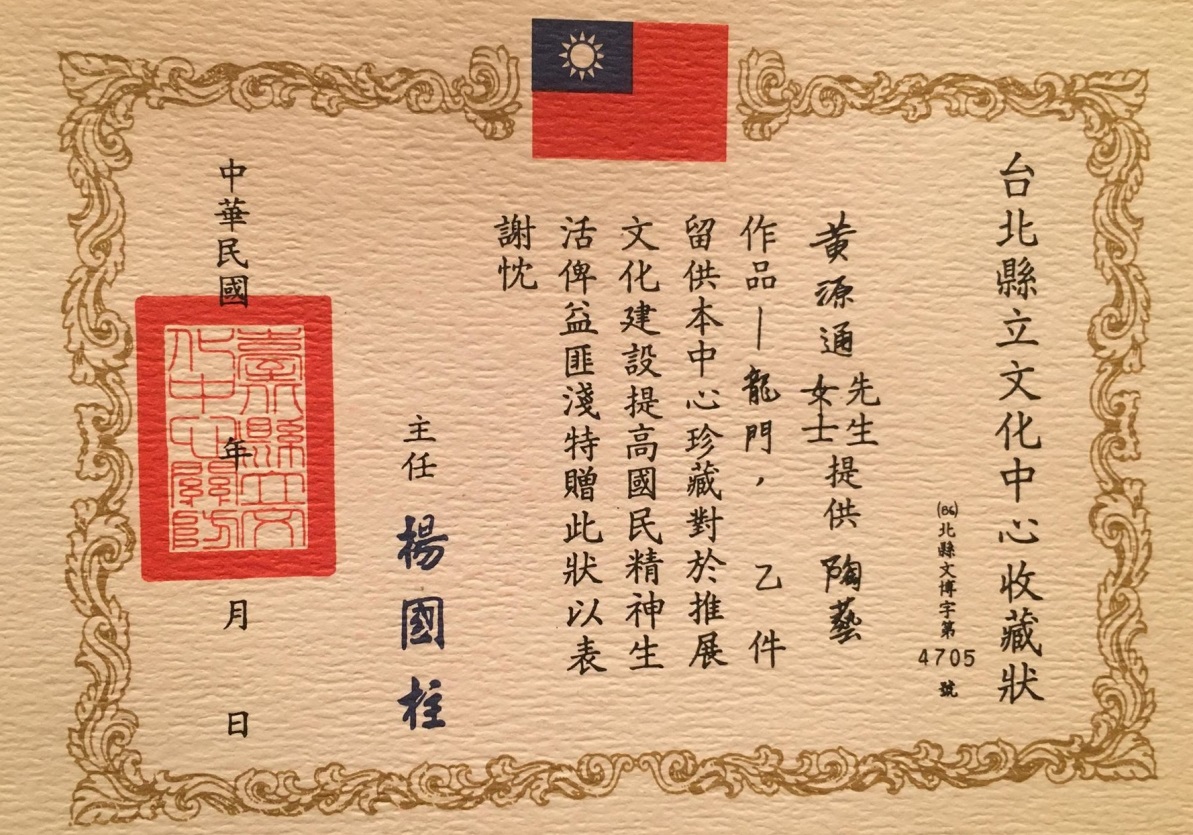 台北縣立文化中心收藏狀
(86)北縣文博字第4705號
黃源通先生女士提供 陶藝
作品—龍門, 乙件
留供本中心珍藏對於推展
文化建設提高國民精神生
活俾益匪淺特贈此狀以表
謝忱
主任 楊國柱
中華民國 年 月 日
臺北縣立文
化中心關防